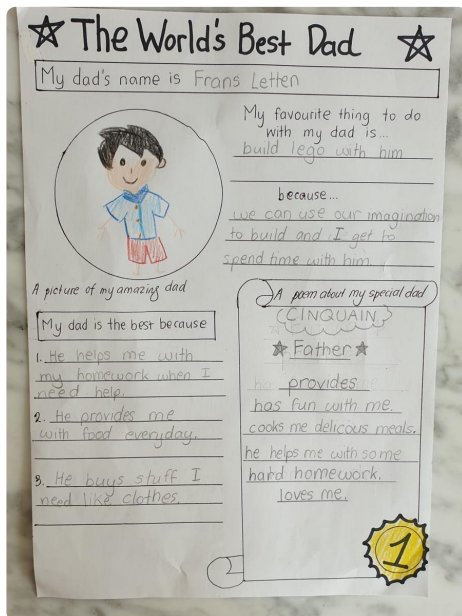 The World's Best Dad
My dad's name is Frans Letten
My favourite thing to do
with my dad is...
build lego with him
because...
we can use our imagination
to build and I get to
spend time with him
A picture of my amazing dad
My dad is the best because
1. He helps me with
my homework when I
need help.
2. He provides me
with food everyday.
3. He buys stuff I
need like clothes.
A poem about my special dad
CINQUAIN
Father
provides
has fun with me.
cooks me delicous meals.
he helps me with some
hard homework.
loves me.
1